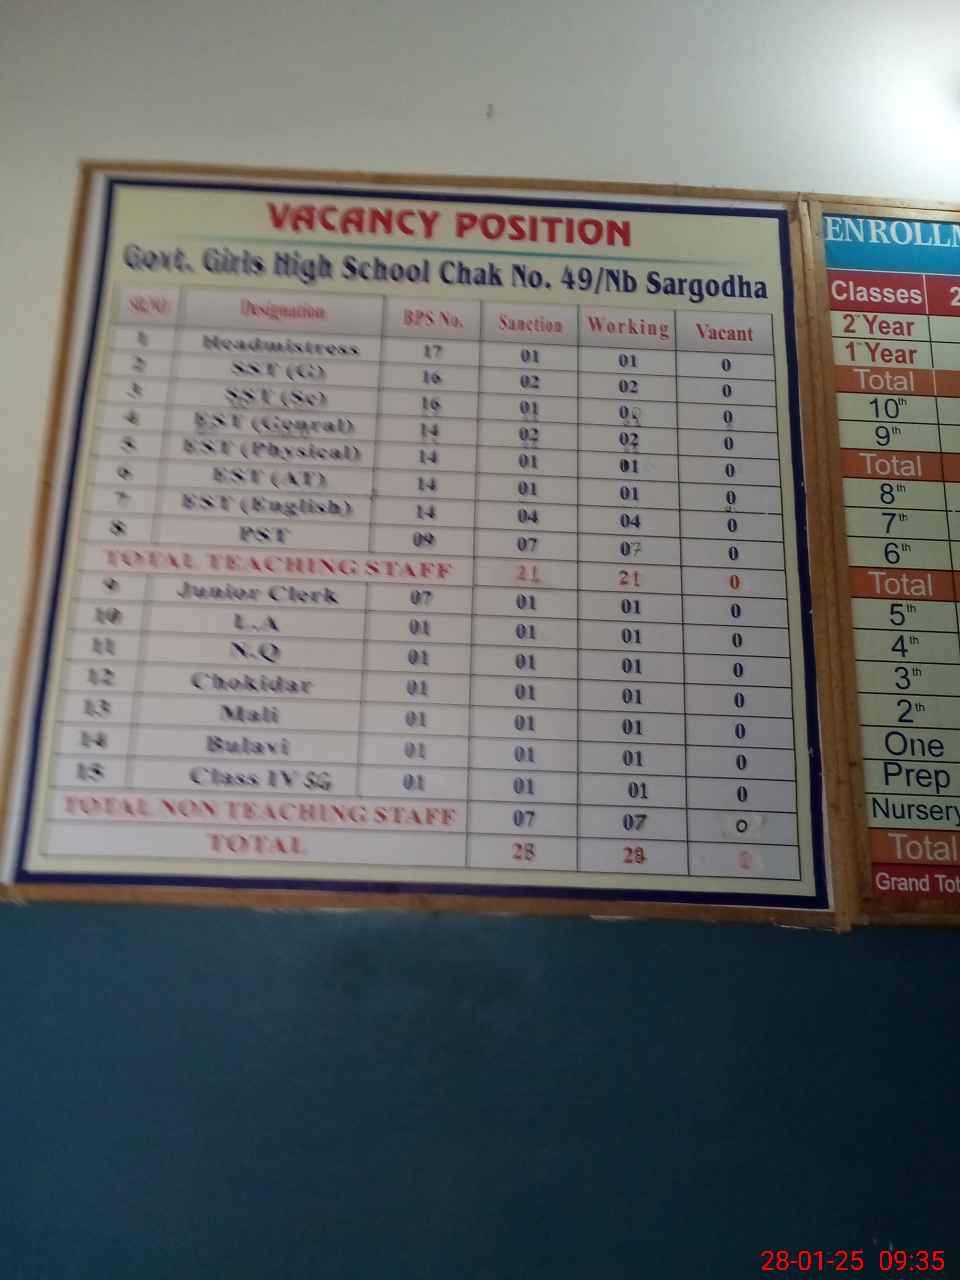 VACANCY POSITION
Govt. Girls High School Chak No. 49/Nb Sargodha
Sr.No Designation BPS No. Sanction Working Vacant
1 Headmistress 17 01 01 0
2 SST (G) 16 02 02 0
3 SST (Sc) 16 01 0
4 EST (Genral) 14 02 02 0
5 EST (Physical) 14 01 01 0
6 EST (AT) 14 01 01 0
7 EST (English) 14 04 04 0
8 PST 09 07 07 0
TOTAL TEACHING STAFF 21 21 0
9 Junior Clerk 07 01 01 0
10 L.A 01 01 01 0
11 N.Q 01 01 01 0
12 Chokidar 01 01 01 0
13 Mali 01 01 01 0
14 Bulavi 01 01 01 0
15 Class IV SG 01 01 01 0
TOTAL NON TEACHING STAFF 07 07 0
TOTAL 28 28
Classes
2nd Year
1st Year
Total
10th
9th
Total
8th
7th
6th
Total
5th
4th
3th
2th
One
Prep
Nursery
Total
Grand
28-01-25 09:35